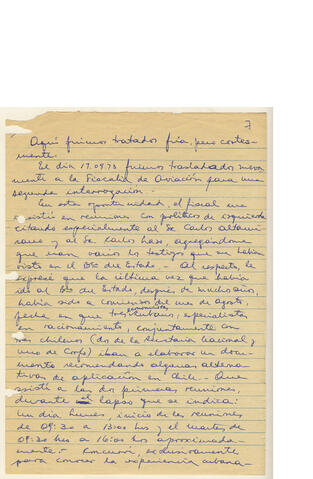 7
Aquí fuimos tratados fría, pero cortes-
mente.
El día 17.09.73 fuimos trasladados nueva-
mente a la Fiscalía de Aviación para una
segunda interrogación.-
En esta oportunidad, el fiscal me
insistió en reuniones con políticos de izquierda
citando especialmente al Sr Carlos Altami-
rano y al Sr. Carlos Lazo, agregándome
que eran varios los testigos que me habían
visto en el Bco del Estado.- Al respecto, le
expresé que la última vez que había
ido al Bco del Estado, después de muchos años,
había sido a comienzos del mes de agosto,
fecha en que tres cubanos, especialistas
en racionamiento, conjuntamente con
tres chilenos (dos de la Secretaría Nacional y
uno de Corfo) iban a elaborar un docu-
mento recomendando algunas alterna-
tivas de aplicación en Chile.- Que
asistí a las dos primeras reuniones
durante el lapso que se indica:
Un día lunes, inicio de las reuniones
de 09:30 a 13:00 hrs y el martes de
09:30 hrs a 16:00 hrs aproximada-
mente.- Concurrí, exclusivamente
para conocer la experiencia cubana-